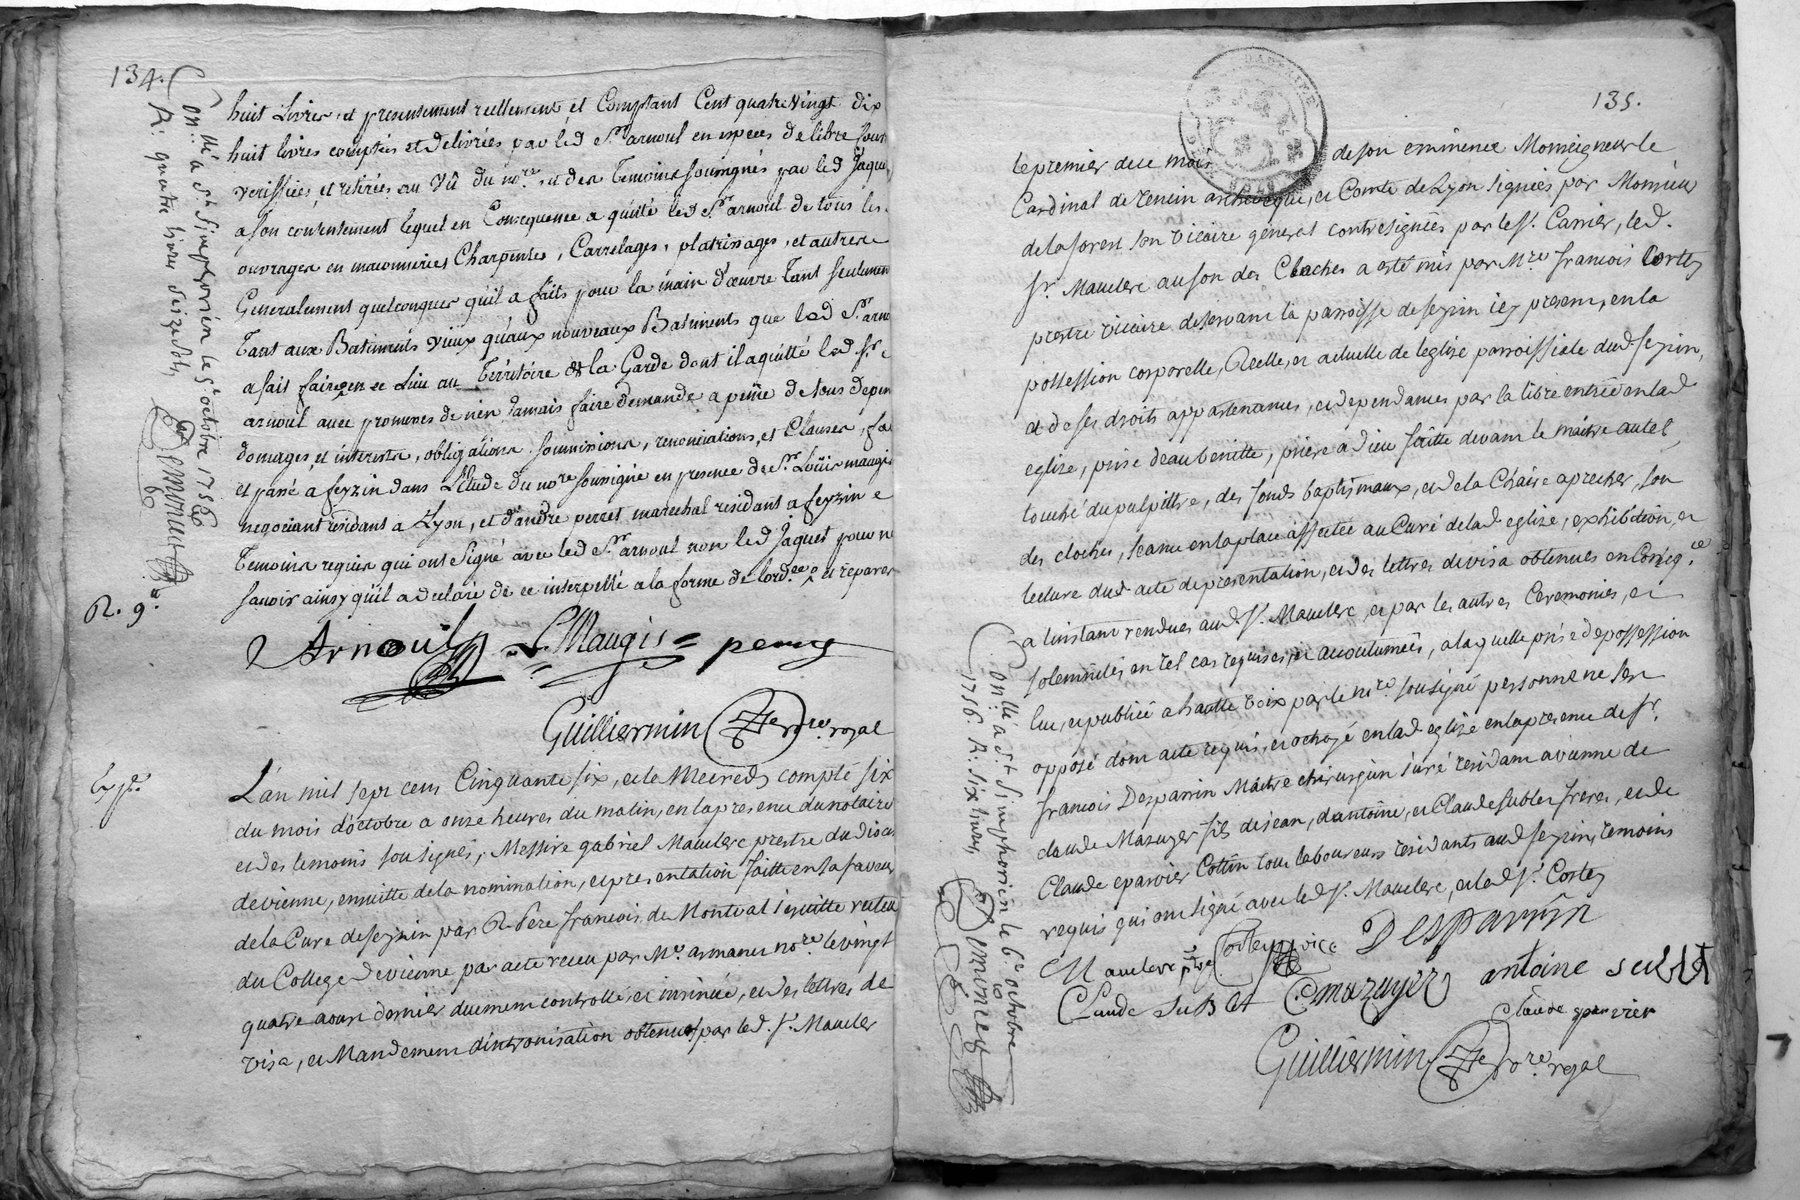 134.
huit Livres, et presentement reellement et Comptant Cent quatre Vingt dix
huit livres comptées et delivrées par led Sr arnoul en especes de libre
verissiées, et retirées au Vû du nore, et des Temoins soussignés par led Jaque
a son contentement lequel en Consequence a quitté led Sr arnoul de tous les
ouvrages en maconneries Charpentes, Carrelages, platrissages, et autres
Generalement quelconques qu'il a faits pour la main d'œuvre Tant seulement
Tant aux Batiments Vieux qu'aux nouveaux Batiments que led Sr arno
a fait faire en ce Lieu au Térritoire de la Garde dont il a quitté led Sr
arnoul avec promesses de n'en Jamais faire demande a peine de tous depen
domages, et interests, obligations soumissions, renonciations, et Clauses, fa
et passé a feyzin dans L'Etude du nore soussigné en presence de Sr Loüis maugis
negociant residant a Lyon, et d'andré perret marechal residant a feyzin
Temoins requis qui ont signé avec led Sr arnoul non led Jaquet pour ne
savoir ainsy qu'il a declaré de ce interpellé a la forme de lordce
R. 9
Arnoul L Maugis perret
Guilliermin nore royal
on. llé a St Simphorien le 8e octobre 1756
R: quatre livres seize sols,
L'an mil sept cens Cinquante six, et le Mecredy compté six
du mois d'octobre a onze heures du matin, en la presence du notaire
et des temoins soussignés, Messire gabriel Mauclerc prestre du dioce
de vienne, ensuitte de la nomination, et presentation faitte en sa faveur
de la Cure de feyzin par R. Pere francois de Montval Jesuitte recteu
du College de vienne par acte receu par Me armanet nore le vingt
quatre aoust dernier duement controllé et insinué, et des lettres de
visa, et Mandement d'intronisation obtenues par led. Sr Maucler
135.
le premier de ce mois de son eminence Monseigneur le
Cardinal de tencin archeveque, et Comte de Lyon signées par Monsieur
de la forest son vicaire general contresignées par le Sr. Carrier, led.
Sr. Mauclerc au son des Cloches a esté mis par Mre francois Cortey
prestre vicaire desservant la parroisse de feyzin icy present, en la
possession corporelle, Réelle, et actuelle de leglise parroissiale dud. feyzin,
et de ses droits appartenances, et dependances par la libre entrée en lad
eglise, prise d'eau benitte, priere a Dieu faitte devant le maitre autel
touché du pulpittre, des fonds baptismaux, et de la Chaise a precher, son
des cloches, seance en la place affectée au Curé de lad eglise, exhibition, et
lecture dud acte de presentation, et des lettres de visa obtenues en Conseqce
a l'instant rendues aud. Sr. Mauclerc, et par les autres Ceremonies, et
solemnités en tel cas requises, et accoutumées, a laquelle prise de possession
lue, et publiée a haulte voix par le nore soussigné personne ne s'est
opposé dont acte requis, et octroyé en lad eglise en la presence de Sr.
francois Desparrin Maitre chirurgien juré residant a vienne de
claude Mazuyer fils de jean, d'antoine, et Claude sublet freres, et de
Claude eparvier Cottin tous laboureurs residants aud feyzin, temoins
requis qui ont signé avec led Sr. Mauclerc, et led Sr. Cortey
Mauclerc ptre Cortey vice Desparrin
Claude suBlet C mazuyer antoine seublet
Claude eparvier
Guilliermin nore royal
on. llé a St Simphorien le 6e octobre
1756. R: six livres,